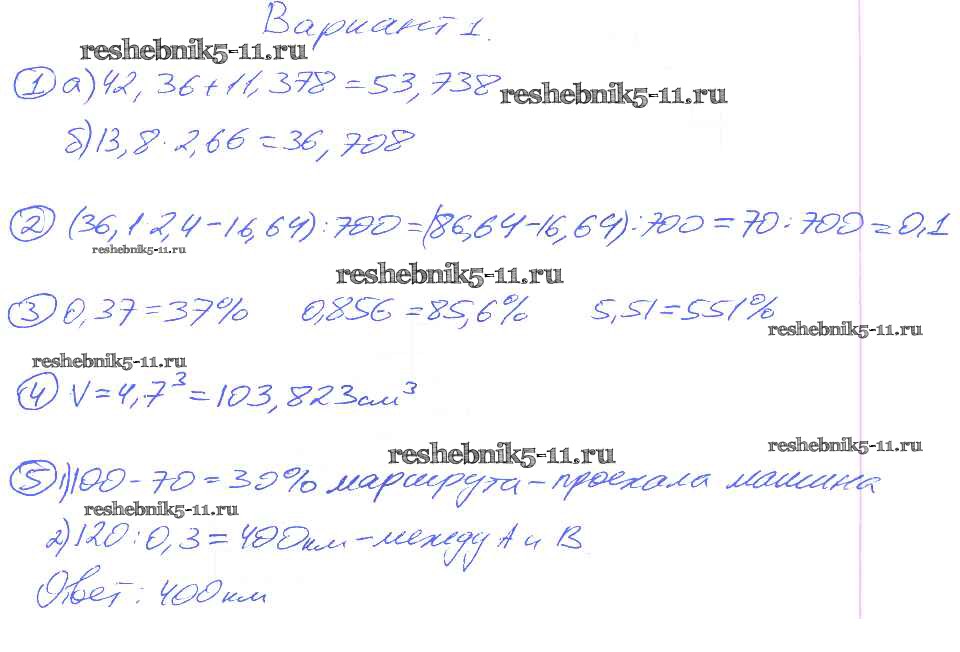 Вариант 1.
reshebnik5-11.ru
① а) 42,36+11,378=53,738
reshebnik5-11.ru
б) 13,8·2,66=36,708
② (36,1·2,4-16,64):700=(86,64-16,64):700=70:700=0,1
reshebnik5-11.ru
reshebnik5-11.ru
③ 0,37=37% 0,856=85,6% 5,51=551%
reshebnik5-11.ru
reshebnik5-11.ru
④ V=4,7³=103,823см³
reshebnik5-11.ru
reshebnik5-11.ru
⑤ 1) 100-70=30% маршрута-проехала машина
reshebnik5-11.ru
2) 120:0,3=400км-между А и В
Ответ: 400км